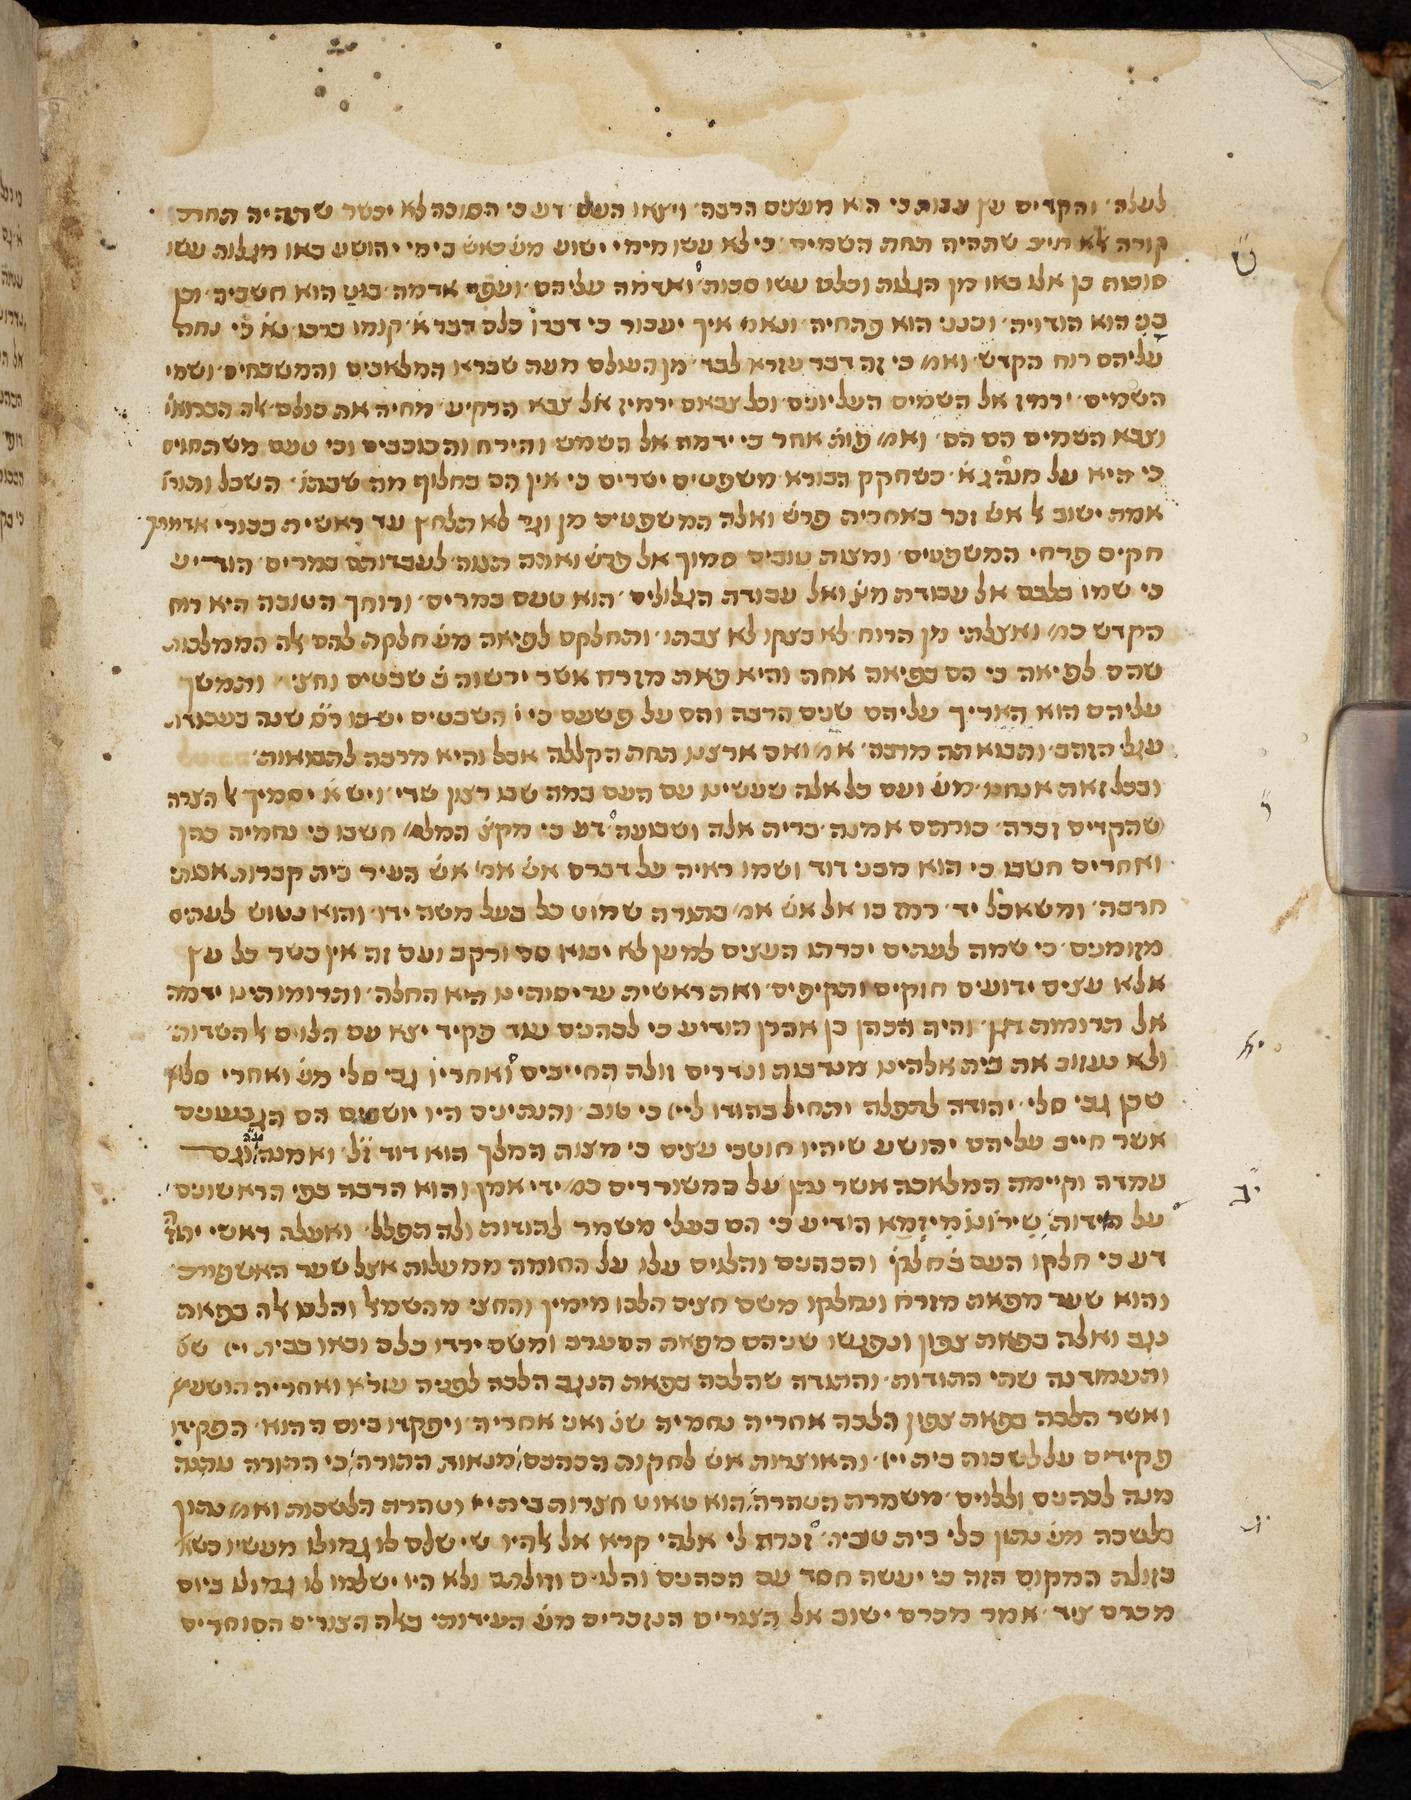 לעלה׳ והקדים עץ עבות כי הוא מעצים הרבה׳ ויצאו העם׳ דע כי הסוכה לא יכשר שתהיה תחת
קורה לא חייב שתהיה תחת השמים׳ כי לא עשו מימי ישוע מש׳ כאש׳ בימי יהושע באו מגלות עשו
סוכות כן אלו באו מן הגלות וכלם עשו סכות׳ ואדמה עליהם׳ ועפ׳ אדמה׳ בגע הוא חשביה׳ וכן
בני הוא הודויה׳ ובנני הוא פתחיה׳ ונאמ׳ איך יעבור כי דברו כלם דבר א׳ קומו ברכו נא׳ כי נחה
עליהם רוח הקדש׳ ואמ׳ כי זה דבר עזרא לבד׳ מן העולם מעת שבראו המלאכים והמשבחים׳ ושמי
השמים׳ ירמוז אל השמים העליונים׳ וכל צבאם ירמוז אל צבא הרקיע׳ מחיה את כולם׳ אלה הברואי׳
וצבא השמים הם הם׳ ואמ׳ פות׳ אחר כי ירמוז אל השמש והירח והכוכבים וכי טעם משתחוים
כי היא על מנהג א׳ כשחקק הבורא משפטים ישרים כי אין הם בחלוף מחשבתו׳ השכל ותורו׳
אמת ישוב ל אש׳ זכר באחריה פרש׳ ואלה המשפטים מן וגר לא תלחץ עד ראשית בכורי אדמתך
חקים פרחי המשפטים׳ ומצות טובים סמוך אל פרש׳ ואתה תצוה׳ לעבדותם במרים׳ הודיע
כי שמו בלבם אל עבודת מצ׳ ואל עבודת הגלולים׳ הוא טעם במרים׳ ורוחך הטובה היא רוח
הקדש כמ׳ ואצלתי מן הרוח׳ לא בצקו לא צבתו׳ ותחלקם לפיאה מש׳ חלקת להם אלה הממלכות
שהם לפיאה כי הם בפיאה אחת והיא פאת מזרח אשר ירשוה ב׳ שבטים וחצי׳ ותמשך
עליהם הוא האריך עליהם שנים הרבה והם על פשעם כי י׳ השבטים ישבו ר׳ם׳ שנה בעבודת
עגל הזהב׳ ותבואתה מרבה׳ אמ׳ ואם ארצינו תחת הקללה אבל והיא מרבה לתבואות׳
ובכל זאת אנחנו׳ מש׳ ועם כל אלה שעשינו עם העם במה שבו רצון שדי׳ ויש א׳ יסמיך ל הצרה
שהקדים זכרה׳ כורתים אמנה׳ ברית אלה ושבועה׳ דע כי מקצ׳ המלמ׳ חשבו כי נחמיה כהן
ואחרים חשבו כי הוא מבני דוד ושמו ראיה על דברם אש׳ אמ׳ אש׳ העיר בית קברות אבותי
חרבה׳ ומשא כל יד׳ רמז בו אל אש׳ אמ׳ בתורה שמוט כל בעל משה ידו׳ והוא נטוש לעתים
מזומנים׳ כי שמה לעתים יכרתו העצים למען לא יבוא סס ורקב ועם זה אין כשר כל עץ
אלא עצים ידועים חזקים ותקיפים׳ ואת ראשית עריסותינו היא החלה׳ ותרומותינו ידמה
אל תרומת דגן׳ והיה הכהן בן אהרן הודיע כי לכהנים עוד פקיד יצא עם הלוים ל השדות׳
ולא נעזוב את בית אלהינו מנדבות ונדרים זולה החייבים׳ ואחריו גבי סלי מש׳ ואחרי סלוא
שכן גבי סלי׳ יהודה לתפלה יתחיל בהודו ליי׳ כי טוב׳ והנתינים היו יושבים הם הגבעונים
אשר חייב עליהם יהושע שיהיו חוטבי עצים כי מצות המלך הוא דוד ז״ל׳ ואמנה וגם
עמדה וקיימה המלאכה אשר נתן על המשוררים כמ׳ ידי אמן והוא הרבה בפי הראשונים׳
על הידות׳ שירונו מי זמא הודיע כי הם בעלי משמר להודות ולהתפלל׳ ואעלה ראשי יהו׳
דע כי חלקו העם ב׳ חלקי׳ והכהנים והלוים עלו על החומה ממעלות אצל שער האשפות
והוא שער מפאת מזרח ונחלקו משם חצים הלכו מימין והחצי מהשמאל והלכו אלה בפאת
נגב ואלה בפאת צפון ונפגשו שניהם מפאת המערב ומשם ירדו כלם ובאו בבית יי׳ שנ׳
ותעמדנה שתי התודות׳ והתודה שהלכה בפאת הנגב הלכה לפניה עזרא ואחריה הושעיא
ואשר הלכה בפאת צפון הלכה אחריה נחמיה שנ׳ ואני אחריה׳ ויפקדו ביום ההוא׳ הפקידו
פקידים על לשכות בית יי׳׳ והאוצרות אש׳ לחקות הכהנים׳ מנאות התורה׳ כי התורה ענתה
מנה לכהנים וללוים׳ משמרת הטהרה׳ הוא טאוט חצרות בית יי׳ וטהרת הלשכות ואמ׳ נתון
בלשכה מש׳ נתון כלי בית טוביה׳ זכרה לי אלהי קרא אל אלהיו שישלם לו גמולו מעשיו כש׳
בזולת המקום הזה כי יעשה חסד עם הכהנים והלוים וזולתם ולא היו ישלמו לו גמולו ביום
מכרם ציד׳ אמר מכרם ישוב אל הצורים הנזכרים מש׳ העידותי באלה הצורים הסוחרים
ט
י
יא
יב
יג